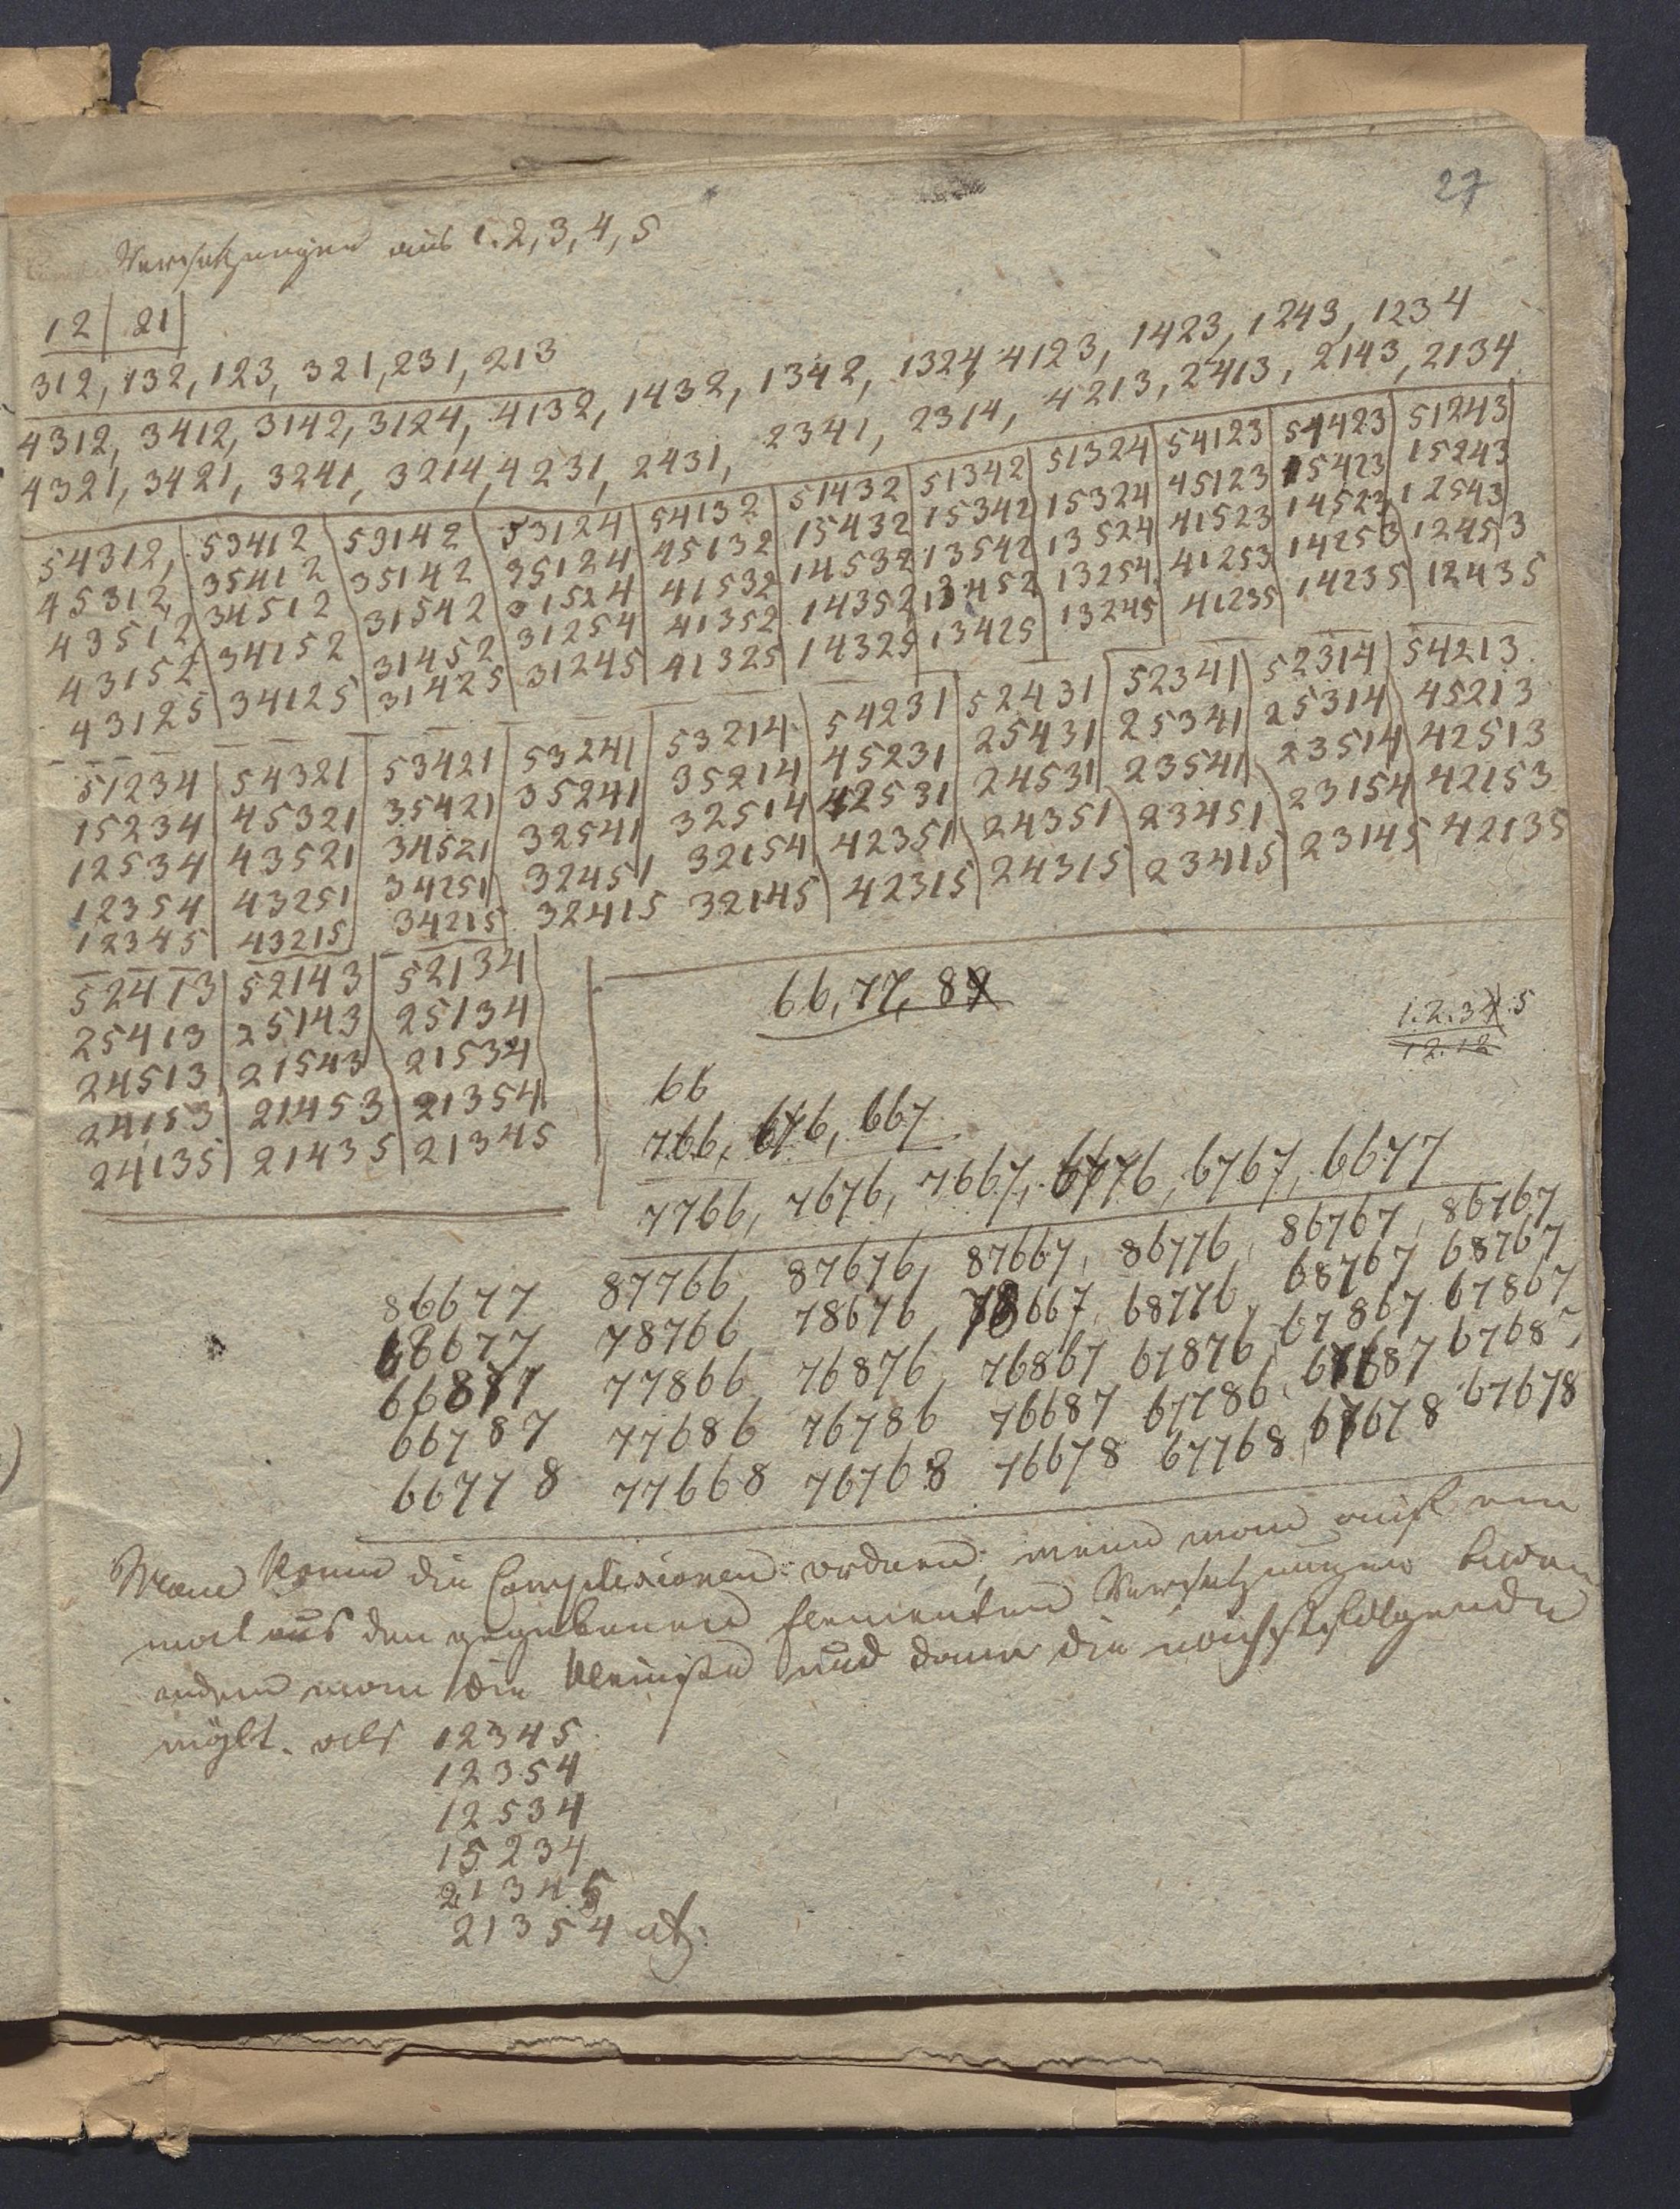 27
Versetzungen aus 1.2,3,4,5
12 | 21 |
312, 132, 123, 321, 231, 213
4312, 3412, 3142, 3124, 4132, 1432, 1342, 1324, 4123, 1423, 1243, 1234
4321, 3421, 3241, 3214, 4231, 2431, 2341, 2314, 4213, 2413, 2143, 2134
54312, 53412 53142 53124 54132 51432 51342 51324 54123 51423 51243
45312, 35412 35142 35124 45132 15432 15342 15324 45123 15423 15243
43512 34512 31542 31524 41532 14532 13542 13524 41523 14523 12543
43152 34152 31452 31254 41352 14352 13452 13254 41253 14253 12453
43125 34125 31425 31245 41325 14325 13425 13245 41235 14235 12435
51234 54321 53421 53241 53214 54231 52431 52341 52314 54213
15234 45321 35421 35241 35214 45231 25431 25341 25314 45213
12534 43521 34521 32541 32514 42531 24531 23541 23514 42513
12354 43251 34251 32451 32154 42351 24351 23451 23154 42153
12345 43215 34215 32415 32145 42315 24315 23415 23145 42135
52413 52143 52134
25413 25143 25134
24513 21543 21534
24153 21453 21354
24135 21435 21345
66, 77, 8
1.2.3.4.5
12.12
66
766, 676, 667
7766, 7676, 7667, 6776, 6767, 6677
86677 87766, 87676, 87667, 86776, 86767, 86767
68677 78766 78676, 78667, 68776, 68767 68767
66877 77866, 76876, 76867 67876, 67867 67867
66787 77686 76786 76687 67786, 67687 67687
66778 77668 76768 76678 67768 67678 67678
Man kann die Complexionen ordnen, wenn man auf ein
mal aus den gegebenen Elementen Versetzungen
indem man die kleinste und dann die nächstfolgende
als 12345
12354
12534
15234
21345
21354 etc: